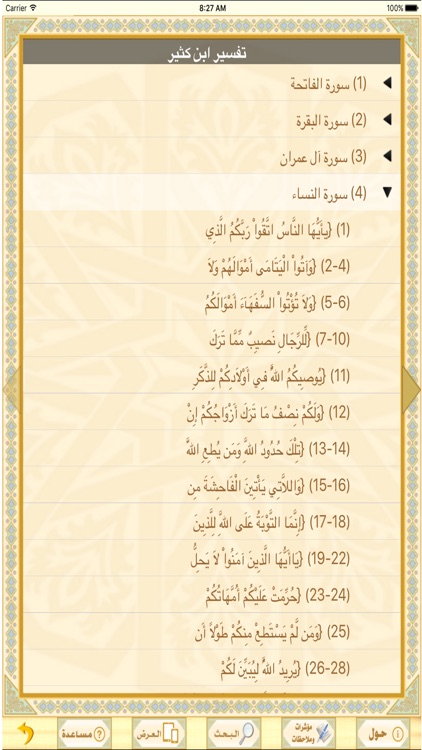 Carrier 8:27 AM 100%
تفسير ابن كثير
(1) سورة الفاتحة
(2) سورة البقرة
(3) سورة آل عمران
(4) سورة النساء
(1) {يأَيُّهَا النَّاسُ اتَّقُواْ رَبَّكُمُ الَّذِي
(2-4) {وَآتُواْ الْيَتَامَى أَمْوَالَهُمْ وَلاَ
(5-6) {وَلاَ تُؤْتُواْ السُّفَهَآءَ أَمْوَالَكُمُ
(7-10) {لِّلرِّجَالِ نَصِيبٌ مِّمَّا تَرَكَ
(11) {يُوصِيكُمُ اللَّهُ فِي أَوْلاَدِكُمْ لِلذَّكَرِ
(12) {وَلَكُمْ نِصْفُ مَا تَرَكَ أَزْوَاجُكُمْ إِنْ
(13-14) {تِلْكَ حُدُودُ اللَّهِ وَمَن يُطِعِ اللَّهَ
(15-16) {وَاللاَّتِي يَأْتِينَ الْفَاحِشَةَ مِن
(17-18) {إِنَّمَا التَّوْبَةُ عَلَى اللَّهِ لِلَّذِينَ
(19-22) {يَاأَيُّهَا الَّذِينَ آمَنُواْ لاَ يَحِلُّ
(23-24) {حُرِّمَتْ عَلَيْكُمْ أُمَّهَاتُكُمْ
(25) {وَمَن لَّمْ يَسْتَطِعْ مِنكُمْ طَوْلاً أَن
(26-28) {يُرِيدُ اللَّهُ لِيُبَيِّنَ لَكُمْ
حول
مؤشرات وملاحظات
البحث
العرض
مساعدة